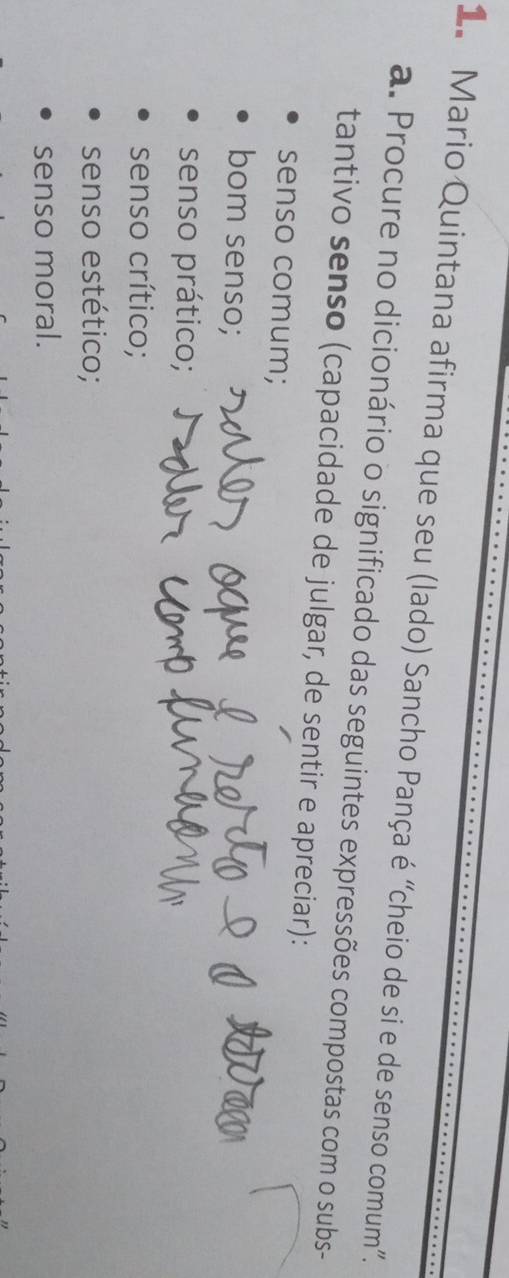 1. Mario Quintana afirma que seu (lado) Sancho Pança é "cheio de si e de senso comum".
a. Procure no dicionário o significado das seguintes expressões compostas com o subs-
tantivo senso (capacidade de julgar, de sentir e apreciar):
• senso comum;
• bom senso; saber oque é serto e o
• senso prático; saber como funciona
• senso crítico;
• senso estético;
• senso moral.